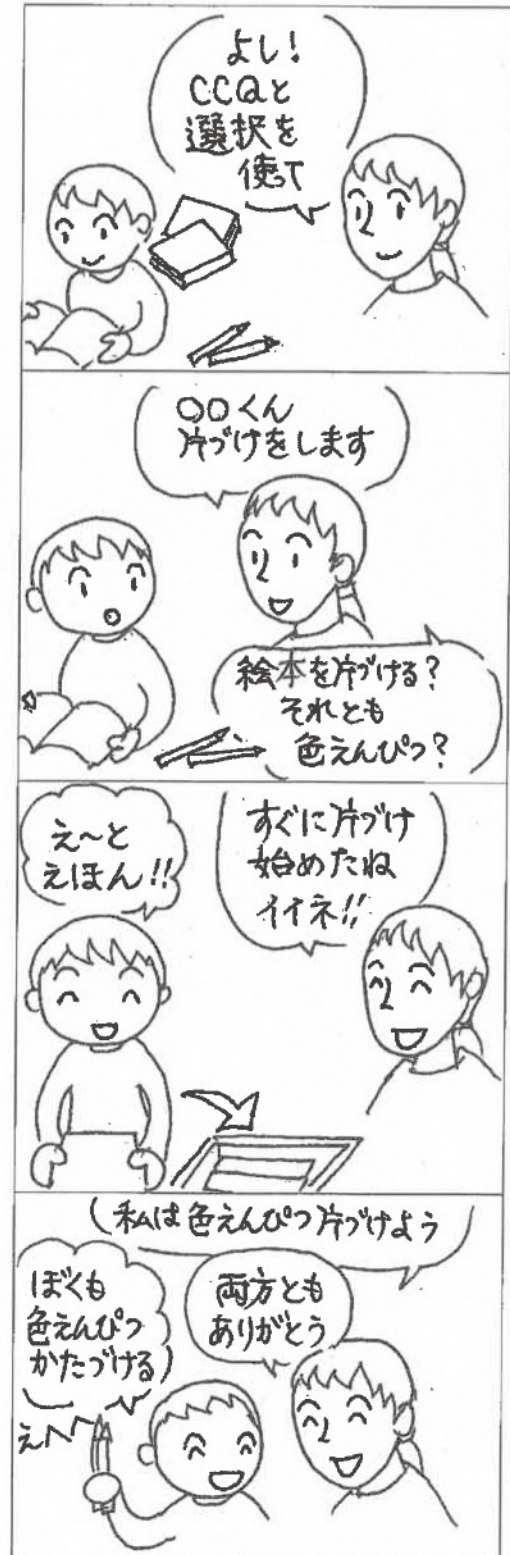 よし！
CCQと
選択を
使って
〇〇くん
片づけをします
絵本を片づける？
それとも
色えんぴつ？
え〜と
えほん!!
すぐに片づけ
始めたね
イイネ!!
私は色えんぴつ片づけよう
ぼくも
色えんぴつ
かたづける
両方とも
ありがとう
えへへ